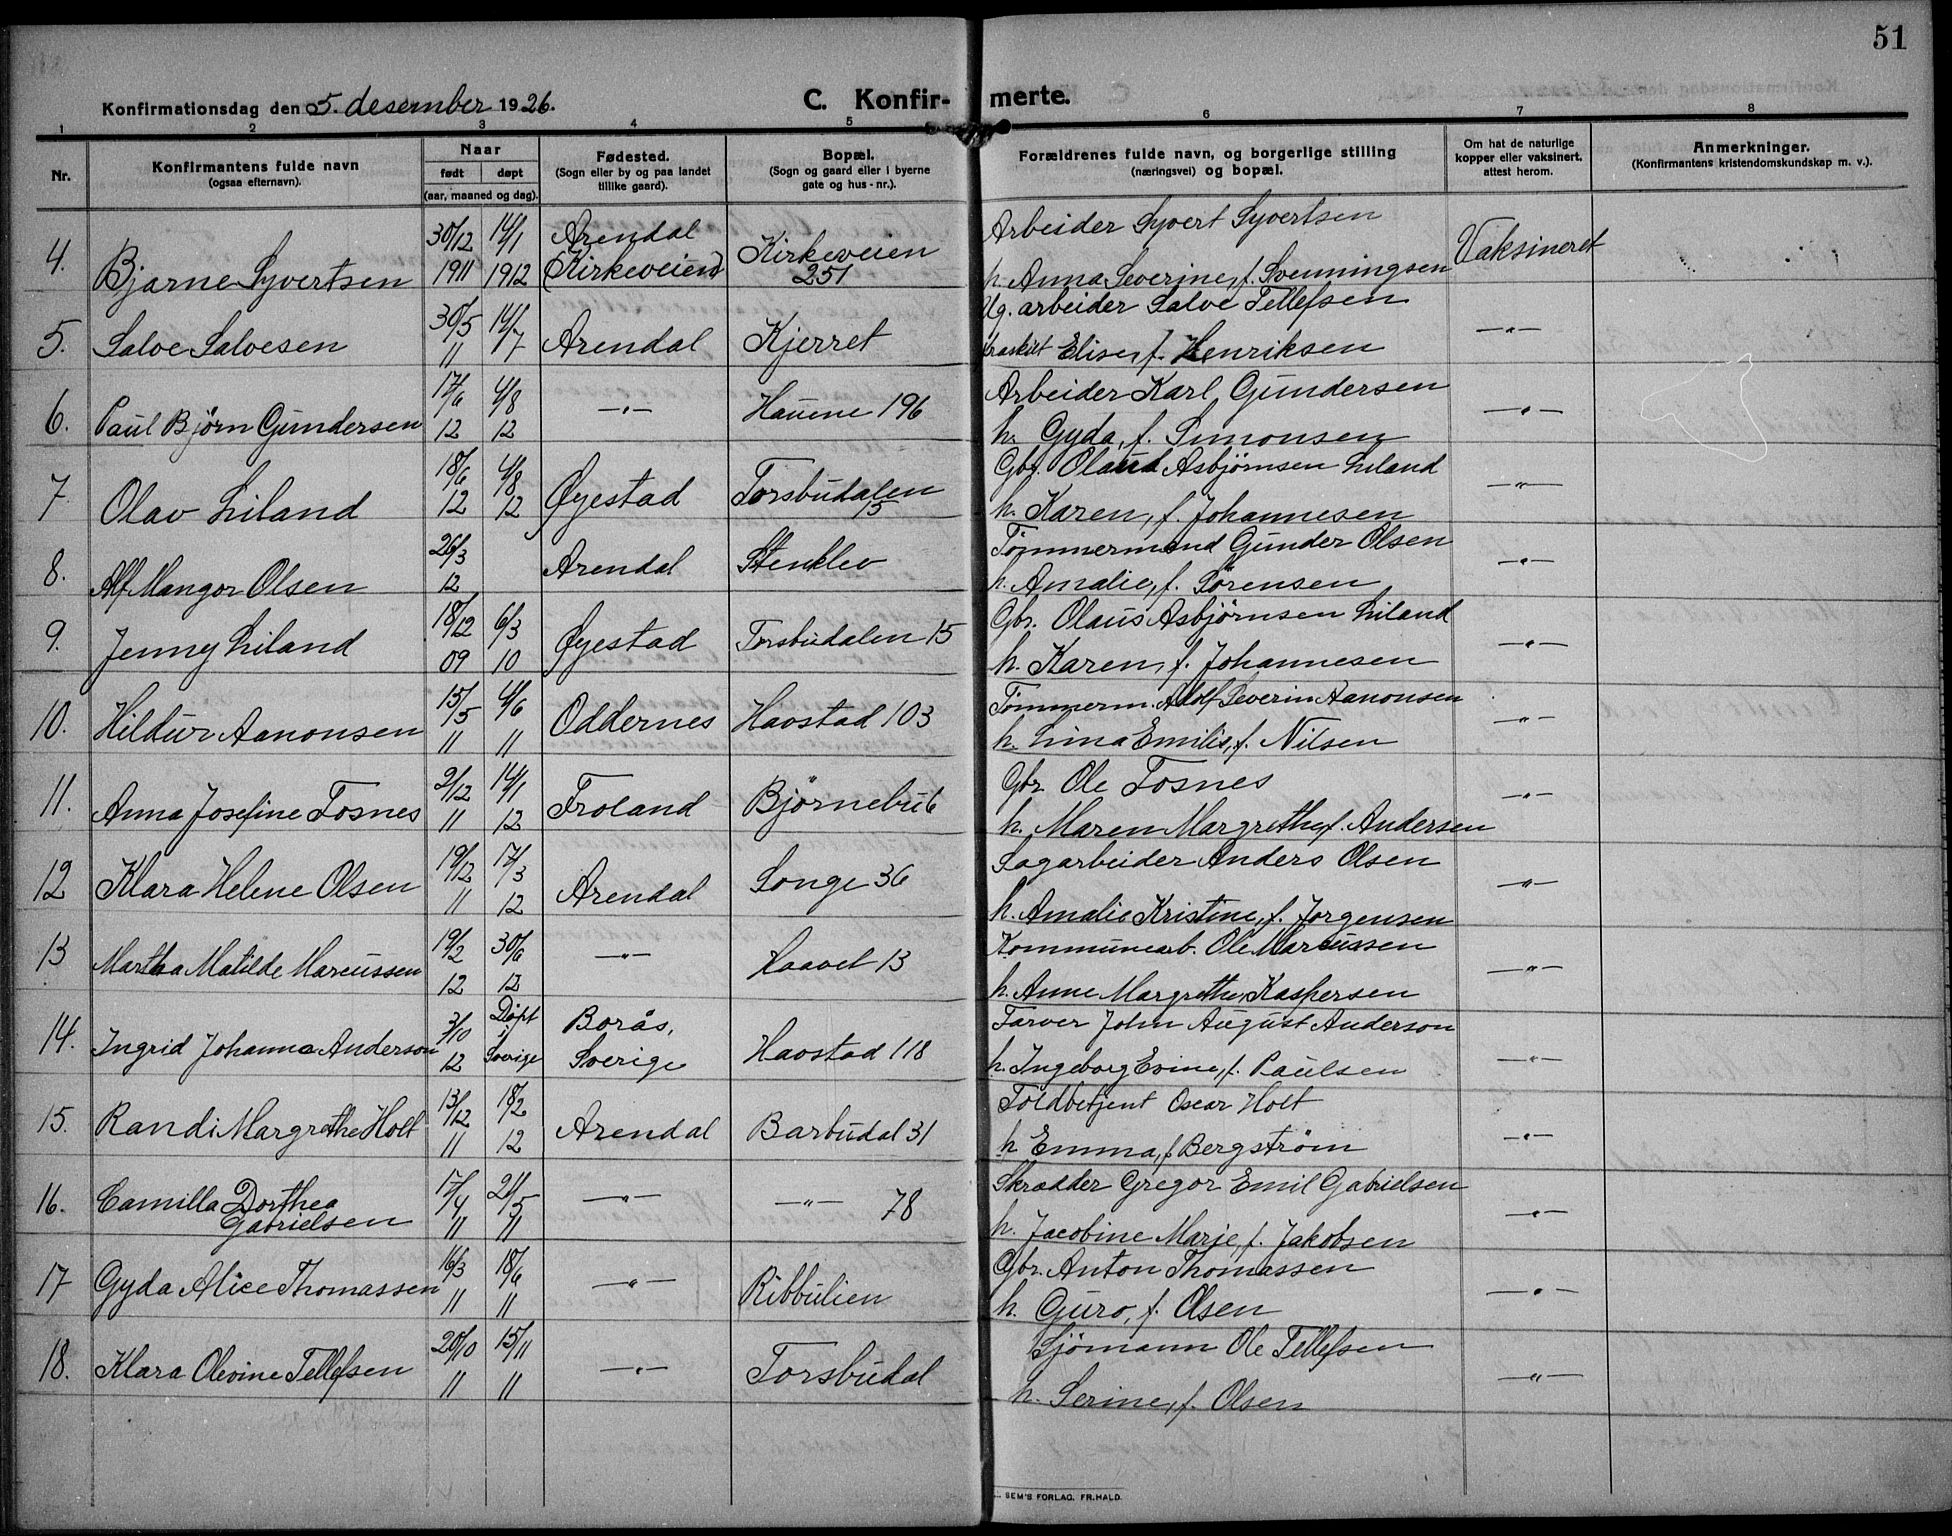 51
Konfirmationsdag den 5. desember 1926.
C. Konfir- merte.
1 2 3 4 5 6 7 8
Nr.
Konfirmantens fulde navn
(ogsaa efternavn).
Naar
født døpt
(aar, maaned og dag).
Fødested.
(Sogn eller by og paa landet
tillike gaard).
Bopæl.
(Sogn og gaard eller i byerne
gate og hus-nr.).
Forældrenes fulde navn, og borgerlige stilling
(næringsvei) og bopæl.
Om hat de naturlige
kopper eller vaksinert,
attest herom.
Anmerkninger.
(Konfirmantens kristendomskundskap m. v.).
30/12 14/1 Arendal Arbeider Syvert Syvertsen
4. Bjarne Syvertsen 1911 1912 (Kirkeveien) Kirkeveien 251 h. Anna Severine, f. Svenningsen Vaksineret
30/5 14/7 Ug. arbeider Salve Tellefsen
5. Salve Salvesen 11 Arendal Kjerret fraskilt Elise, f. Henriksen —"—
17/6 4/8 Arbeider Karl Gundersen
6. Paul Bjørn Gundersen 12 12 —"— Hauene 196 h. Gyda, f. Simonsen —"—
18/6 4/8 Gbr. Olaus Asbjørnsen Liland
7. Olav Liland 12 12 Øyestad Torsbudalen 15 h. Karen, f. Johannesen —"—
26/3 Tømmermand Gunder Olsen
8. Alf Mangor Olsen 12 Arendal Stenklev h. Amalie, f. Sørensen —"—
18/12 6/3 Gbr. Olaus Asbjørnsen Liland
9. Jenny Liland 09 10 Øyestad Torsbudalen 15 h. Karen, f. Johannesen —"—
15/5 4/6 Tømmerm. Adolf Severin Aanonsen
10. Hildur Aanonsen 11 11 Oddernes Havstad 103 h. Lina Emilie, f. Nilsen —"—
2/12 14/1 Gbr. Ole Fosnes
11. Anna Josefine Fosnes 11 12 Froland Bjørnebu 6 h. Maren Margrethe f. Andersen —"—
19/12 17/3 Sagarbeider Anders Olsen
12 Klara Helene Olsen 11 12 Arendal Songe 36 h. Amalie Kristine, f. Jørgensen —"—
19/2 30/6 Kommunearb. Ole Marcussen
13 Martha Matilde Marcussen 12 12 —"— Haavet 13 h. Anne Margrethe, Kaspersen —"—
3/10 Døpt i Borås, Farver John August Anderson
14. Ingrid Johanna Anderson 12 Sverige Sverige Havstad 118 h. Ingeborg Evine, f. Paulsen —"—
13/12 18/2 Toldbetjent Oscar Holt
15. Randi Margrethe Holt 11 12 Arendal Barbudal 31 h Emma, f. Bergstrøm —"—
17/4 21/5 Skrædder Gregor Emil Gabrielsen
16. Camilla Dorthea
Gabrielsen 11 11 —"— —"— 78 h. Jacobine Marie, f. Jakobsen —"—
16/3 18/6 Gbr. Anton Thomassen
17 Gyda Alice Thomassen 11 11 —"— Ribbulien h. Guro, f. Olsen —"—
20/10 15/11 Sjømann Ole Tellefsen
18. Klara Olevine Tellefsen 11 11 —"— Torsbudal h. Serine, f. Olsen —"—
SEM'S FORLAG. FR.HALD.